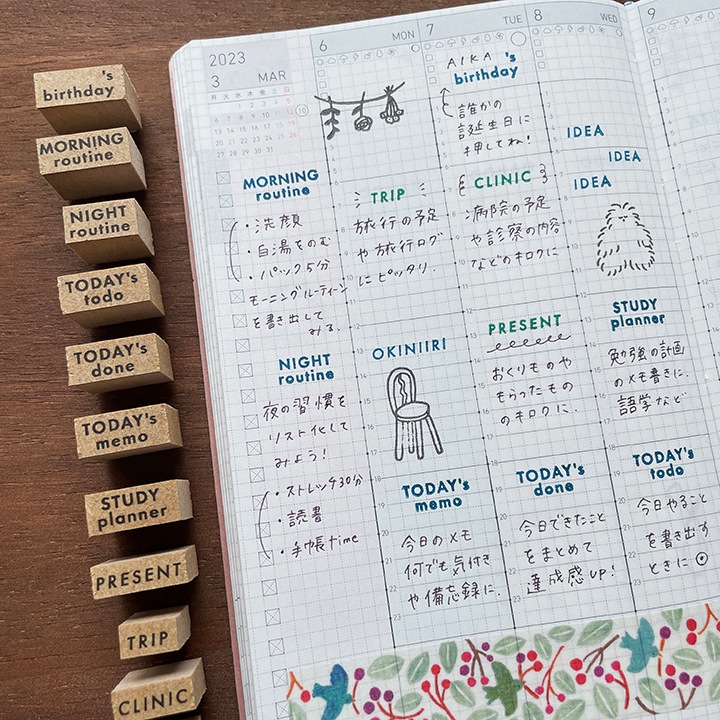 's
birthday
MORNING
routine
NIGHT
routine
TODAY's
todo
TODAY's
done
TODAY's
memo
STUDY
planner
PRESENT
TRIP
CLINIC
2023
3 MAR
月 火 水 木 金 土 日
1 2 3 4 5
6 7 8 9 10 11 12
13 14 15 16 17 18 19
20 21 22 23 24 25 26
27 28 29 30 31
10
MORNING
routine
・洗顔
・白湯をのむ
・パック5分
モーニングルーティーン
を書き出して
みる.
NIGHT
routine
夜の習慣を
リスト化して
みよう!
・ストレッチ30分
・読書
・手帳time
6 MON
TRIP
旅行の予定
や旅行ログ
にピッタリ.
OKINIIRI
TODAY's
memo
今日のメモ
何でも気付き
や備忘録に.
7 TUE
AIKA 's
birthday
誰かの
誕生日に
押してね!
CLINIC
病院の予定
や診察の内容
などのキロクに
PRESENT
おくりものや
もらったもの
のキロクに.
TODAY's
done
今日できたこと
をまとめて
達成感UP!
8 WED
IDEA
IDEA
IDEA
STUDY
planner
勉強の計画
のメモ書きに.
語学など
TODAY's
todo
今日やること
を書き出す
ときに
9